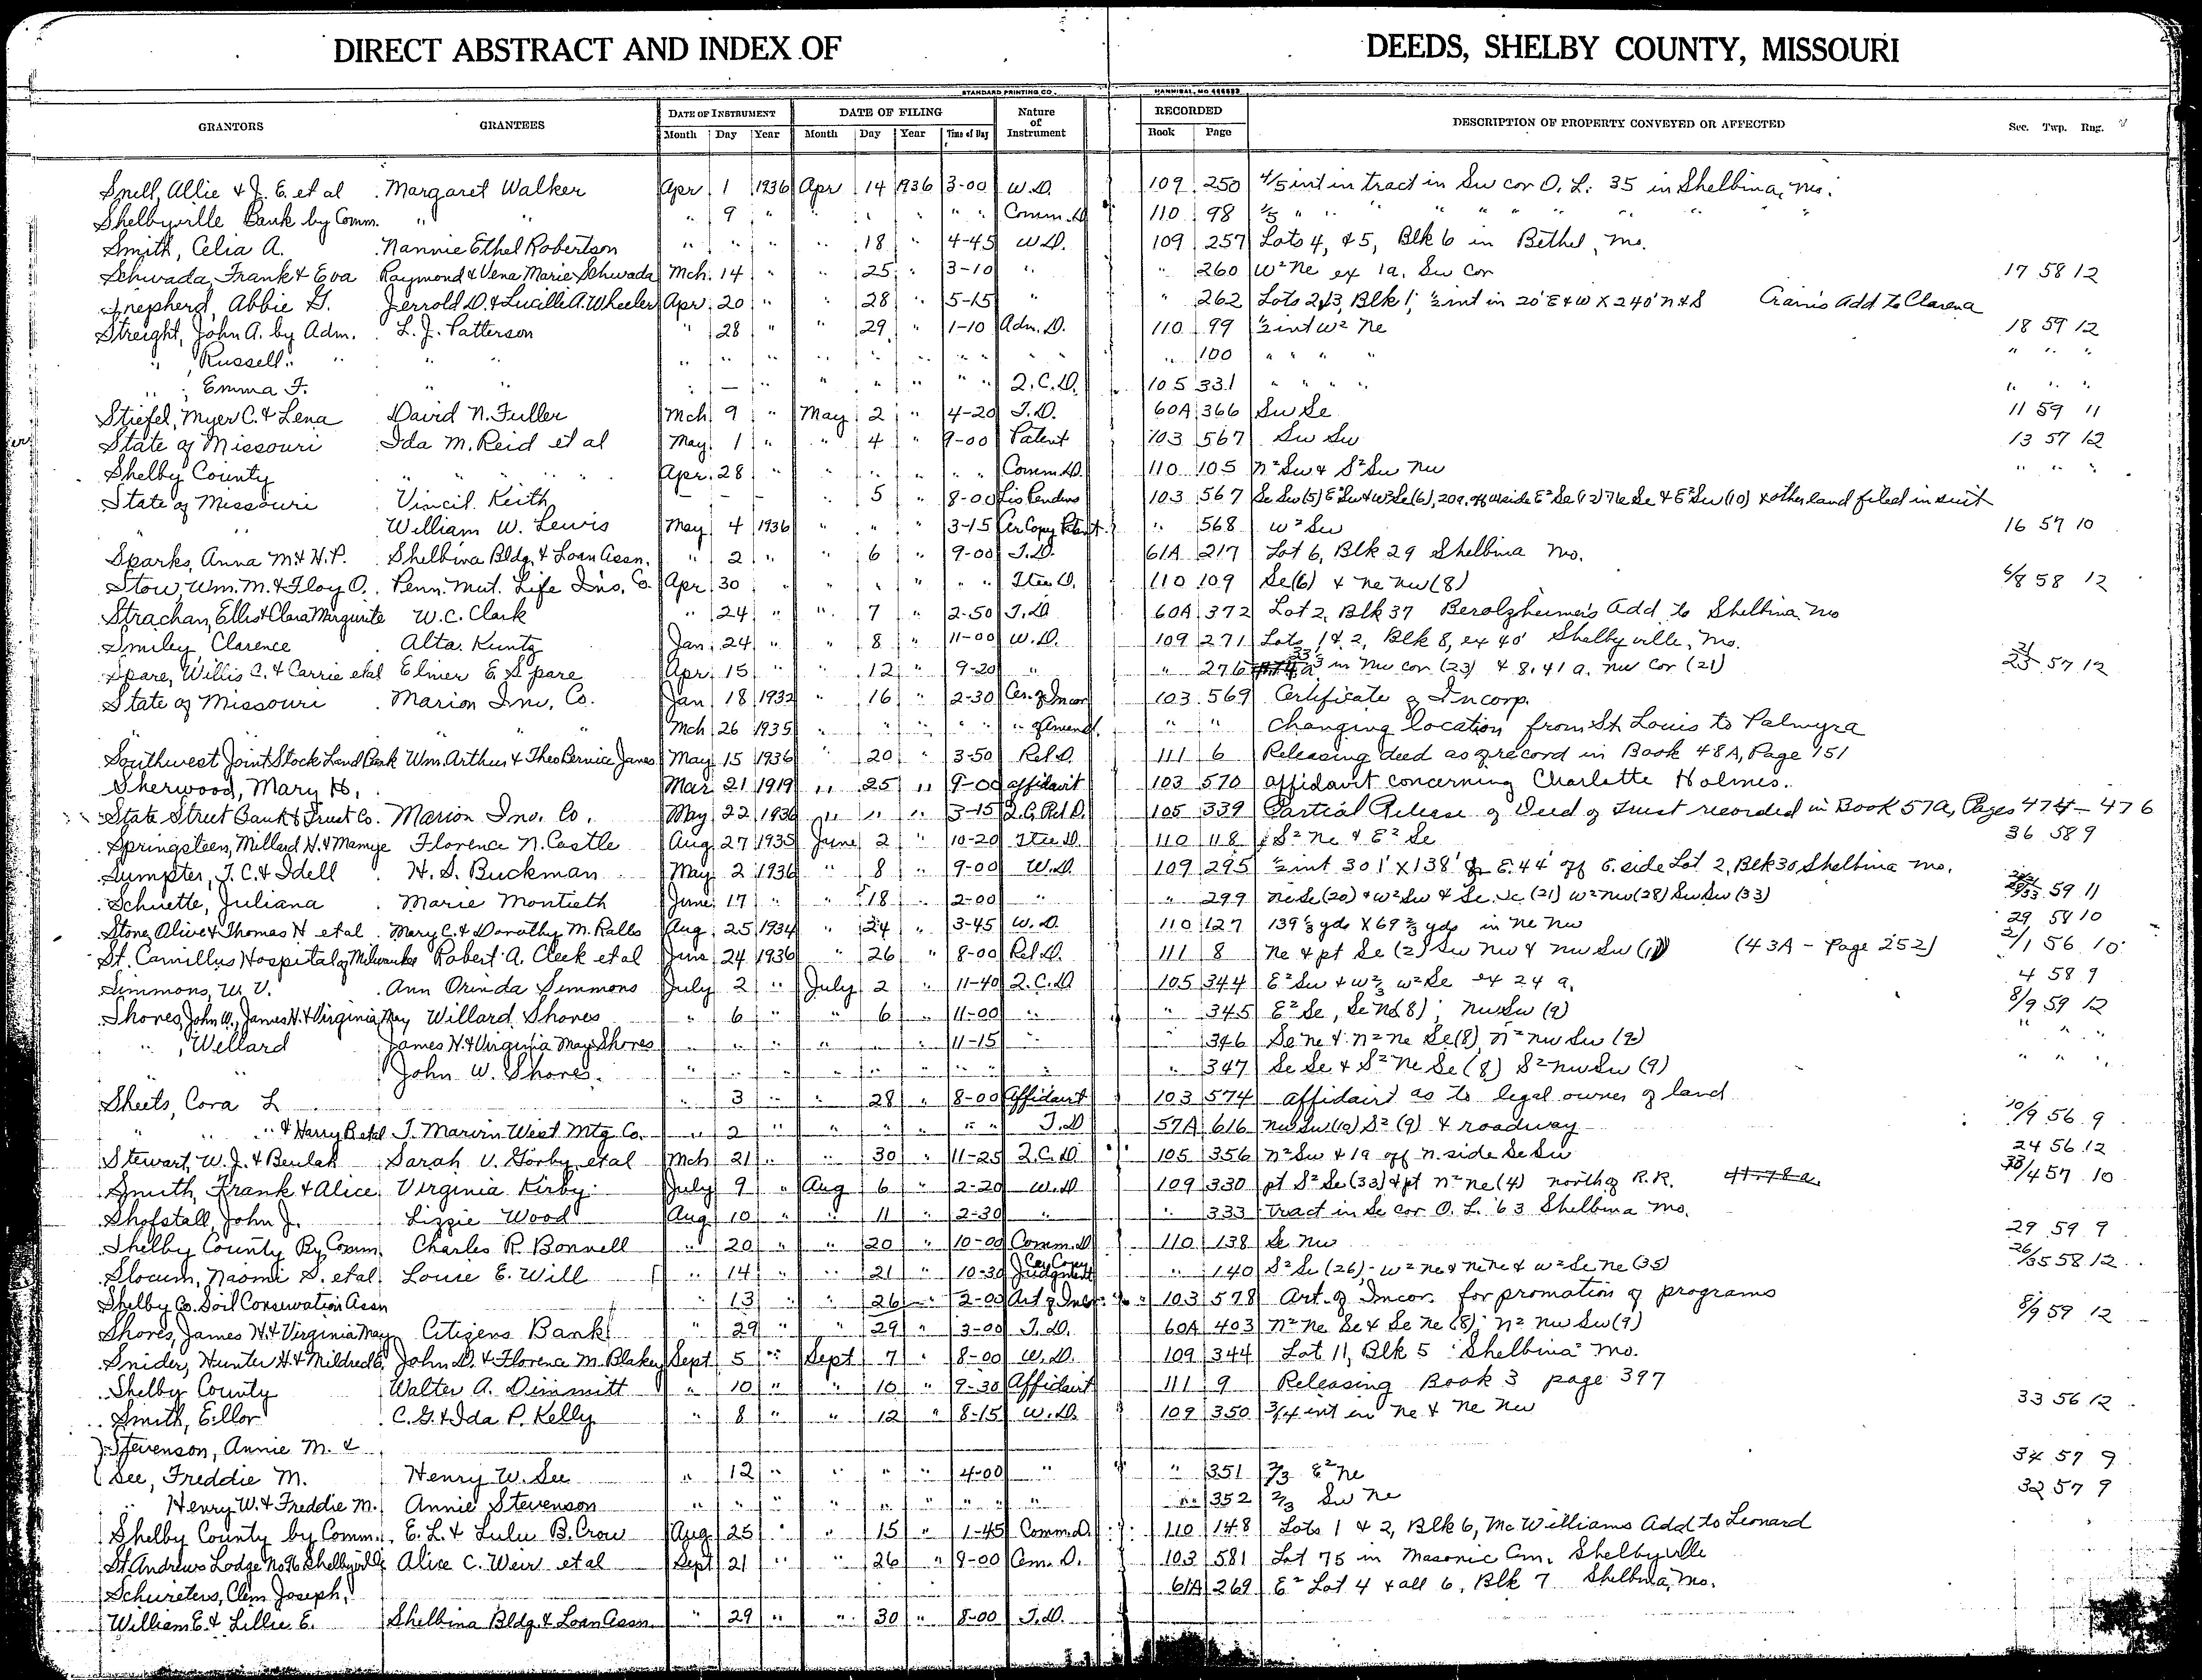 DIRECT ABSTRACT AND INDEX OF DEEDS, SHELBY COUNTY, MISSOURI
STANDARD PRINTING CO. HANNIBAL, MO
GRANTORS GRANTEES DATE OF INSTRUMENT DATE OF FILING Nature of Instrument RECORDED DESCRIPTION OF PROPERTY CONVEYED OR AFFECTED Sec. Twp. Rng.
Month Day Year Month Day Year Time of Day Book Page
Snell, Allie & J. E. et al Margaret Walker Apr 1 1936 Apr 14 1936 3-00 W.D. 109 250 4/5 int in tract in Sw cor O. L. 35 in Shelbina, Mo.
Shelbyville Bank by Comm. " " " 9 " " " " " " Comm. D 110 98 1/5 " " " " " " " " "
Smith, Celia A. Nannie Ethel Robertson " " " " 18 " 4-45 W.D. 109 257 Lots 4, & 5, Blk 6 in Bethel, Mo.
Schwada, Frank & Eva Raymond & Vena Marie Schwada Mch. 14 " " 25 " 3-10 " " 260 W² Ne ex 1a. Sw Cor 17 58 12
Shepherd, Abbie G. Jerrold D. & Lucille A. Wheeler Apr 20 " " 28 " 5-15 " " 262 Lots 2&3, Blk 1; ½ int in 20' E & W X 240' N & S Add to Clarena
Streight, John A. by Adm. L. J. Patterson " 28 " " 29 " 1-10 Adm. D. 110 99 ½ int W² Ne 18 59 12
" , Russell " " " " " " " " " " " " " 100 " " " " " " "
" , Emma F. " " " — " " " " " " Q.C.D. 105 331 " " " " " " "
Stiefel, Myer C. & Lena David N. Fuller Mch 9 " May 2 " 4-20 T.D. 60A 366 Sw Se 11 59 11
State of Missouri Ida M. Reid et al May 1 " " 4 " 9-00 Patent 103 567 Sw Sw 13 57 12
Shelby County " " " " Apr. 28 " " " " " " Comm. D. 110 105 N² Sw & S² Sw Nw " " "
State of Missouri Vincil Keith – – – " 5 8-00 Lis Pendens 103 567 Se Sw (5) E² Sw & W² Se (6), 20a. off W side E² Se (12) Ne Se & E² Sw (10) & other land filed in suit
" " William W. Lewis May 4 1936 " " " 3-15 Cer Copy Patent 568 W² Sw 16 57 10
Sparks, Anna M. & H.P. Shelbina Bldg. & Loan Assn. " 2 " " 6 " 9-00 T.D. 61A 217 Lot 6, Blk 29 Shelbina Mo.
Stow, Wm. M. & Floy O. Penn. Mut. Life Ins. Co. Apr 30 " " " " " " Itee D. 110 109 Se (6) & Ne Nw (8) 6/8 58 12
Strachan, Ellis & Clara Marguerite W. C. Clark " 24 " " 7 " 2-50 T.D. 60A 372 Lot 2, Blk 37 Berolzheimer's Add to Shelbina Mo
Smiley, Clarence Alta Kuntz Jan 24 " " 8 " 11-00 W.D. 109 271 Lots 1 & 2, Blk 8, ex 40' Shelbyville, Mo.
Spare, Willis C. & Carrie et al Elmer E. Spare Apr. 15 " " 12 " 9-20 " " 276 in Nw cor (23) & 8.41 a. Nw Cor (21) 57 12
State of Missouri Marion Inv. Co. Jan 18 1932 " 16 " 2-30 Cer. of Incor 103 569 Certificate of Incorp.
" " " " Mch 26 1935 " " " " " " of Amend. " " Changing location from St. Louis to Palmyra
Southwest Joint Stock Land Bank Wm. Arthur & Theo Bernice Janes May 15 1936 " 20 " 3-50 Rel D. 111 6 Releasing deed as of record in Book 48A, Page 151
Sherwood, Mary H. Mar 21 1919 " 25 " 9-00 affidavit 103 570 affidavit concerning Charlotte Holmes.
State Street Bank & Trust Co. Marion Inv. Co. May 22 1936 " " " 3-15 Q.C. Rel D. 105 339 Partial Release of Deed of Trust recorded in Book 57A, Pages 474–476
Springsteen, Millard H. & Mamye Florence N. Castle Aug 27 1935 June 2 " 10-20 Itee D. 110 118 S² Ne & E² Se 36 58 9
Sumpter, T. C. & Idell H. S. Buckman May 2 1936 " 8 " 9-00 W.D. 109 295 ½ int 301' X 138' & E. 44' off E. side Lot 2, Blk 30 Shelbina Mo.
Schuette, Juliana Marie Montieth June 17 " " 18 " 2-00 " " 299 Ne Se (20) & W² Sw & Se Se (21) W² Nw (28) Sw Sw (33) 59 11
Stone, Alive & Thomas H et al Mary C. & Dorothy M. Ralls Aug 25 1934 " 24 " 3-45 W.D. 110 127 139⅓ yds X 69⅔ yds in Ne Nw 29 58 10
St. Camillus Hospital of Milwaukee Robert A. Cleek et al June 24 1936 " 26 " 8-00 Rel. D. 111 8 Ne & pt Se (2) Sw Nw & Nw Sw (1) (43A – Page 252) 2/1 56 10
Simmons, W. V. Ann Orinda Simmons July 2 " July 2 " 11-40 Q.C.D 105 344 E² Sw & W⅔ W² Se ex 24 a. 4 58 9
Shores, John W., James H. & Virginia May Willard Shores " 6 " " 6 " 11-00 " " 345 E² Se, Se Ne (8); Nw Sw (9) 8/9 59 12
" , Willard James H. & Virginia May Shores " " " " " 11-15 " " 346 Se Ne & N² Ne Se (8) N² Nw Sw (9) " " "
" " John W. Shores. " " " " " " " " " " 347 Se Se & S² Ne Se (8) S² Nw Sw (9) " " "
Sheets, Cora L " 3 " " 28 " 8-00 Affidavit 103 574 affidavit as to legal owner of land
" " " & Harry B et al T. Marvin West Mtg Co. " 2 " " " " " " T.D 57A 616 Nw Sw (10) S² (9) & roadway 10/9 56 9
Stewart, W. J. & Beulah Sarah V. Gorby et al Mch 21 " " 30 " 11-25 Q.C.D. 105 356 N² Sw & 1a off N. side Se Sw 24 56 12
Smith, Frank & Alice Virginia Kirby July 9 " Aug 6 " 2-20 W.D 109 330 pt S² Se (33) & pt N² Ne (4) north of R.R. 41.78 a. 33/4 57 10
Shofstall, John J. Lizzie Wood Aug 10 " " 11 " 2-30 " " 333 Tract in Se cor O. L. 63 Shelbina Mo.
Shelby County By Comm. Charles R. Bonnell " 20 " " 20 " 10-00 Comm. D 110 138 Se Nw 29 59 9
Slocum, Naomi S. et al Louie E. Will " 14 " " 21 " 10-30 Cer Copy Judgment " 140 S² Se (26) – W² Ne & Ne Ne & W² Se Ne (35) 26/35 58 12
Shelby Co. Soil Conservation Assn " 13 " " 26 " 2-00 Art of Incor 103 578 Art. of Incor. for promotion of programs
Shores, James H. & Virginia May Citizens Bank " 29 " " 29 " 3-00 T.D. 60A 403 N² Ne Se & Se Ne (8); N² Nw Sw (9) 8/9 59 12
Snider, Hunter H. & Mildred E. John D. & Florence M. Blakey Sept 5 " Sept 7 " 8-00 W.D. 109 344 Lot 11, Blk 5 Shelbina Mo.
Shelby County Walter A. Dimmitt " 10 " " 10 " 9-30 Affidavit 111 9 Releasing Book 3 page 397
Smith, Ellor C. G. & Ida P. Kelly " 8 " " 12 " 8-15 W.D. 109 350 3/4 int in Ne & Ne Nw 33 56 12
Stevenson, Annie M. &
See, Freddie M. Henry W. See " 12 " " " " 4-00 " " 351 2/3 E² Ne 34 57 9
" Henry W. & Freddie M. Annie Stevenson " " " " " " " " " " 352 2/3 Sw Ne 32 57 9
Shelby County by Comm. E. L. & Lulu B. Crow Aug 25 " " 15 " 1-45 Comm. D. 110 148 Lots 1 & 2, Blk 6, McWilliams Add to Leonard
St. Andrews Lodge No 96 Shelbyville Alice C. Weir et al Sept 21 " " 26 " 9-00 Cem. D. 103 581 Lot 75 in Masonic Cem. Shelbyville
Schureters, Clem Joseph, 61A 269 E² Lot 4 & all 6, Blk 7 Shelbina, Mo.
William E. & Lillie E. Shelbina Bldg. & Loan Assn. " 29 " " 30 " 8-00 T.D.